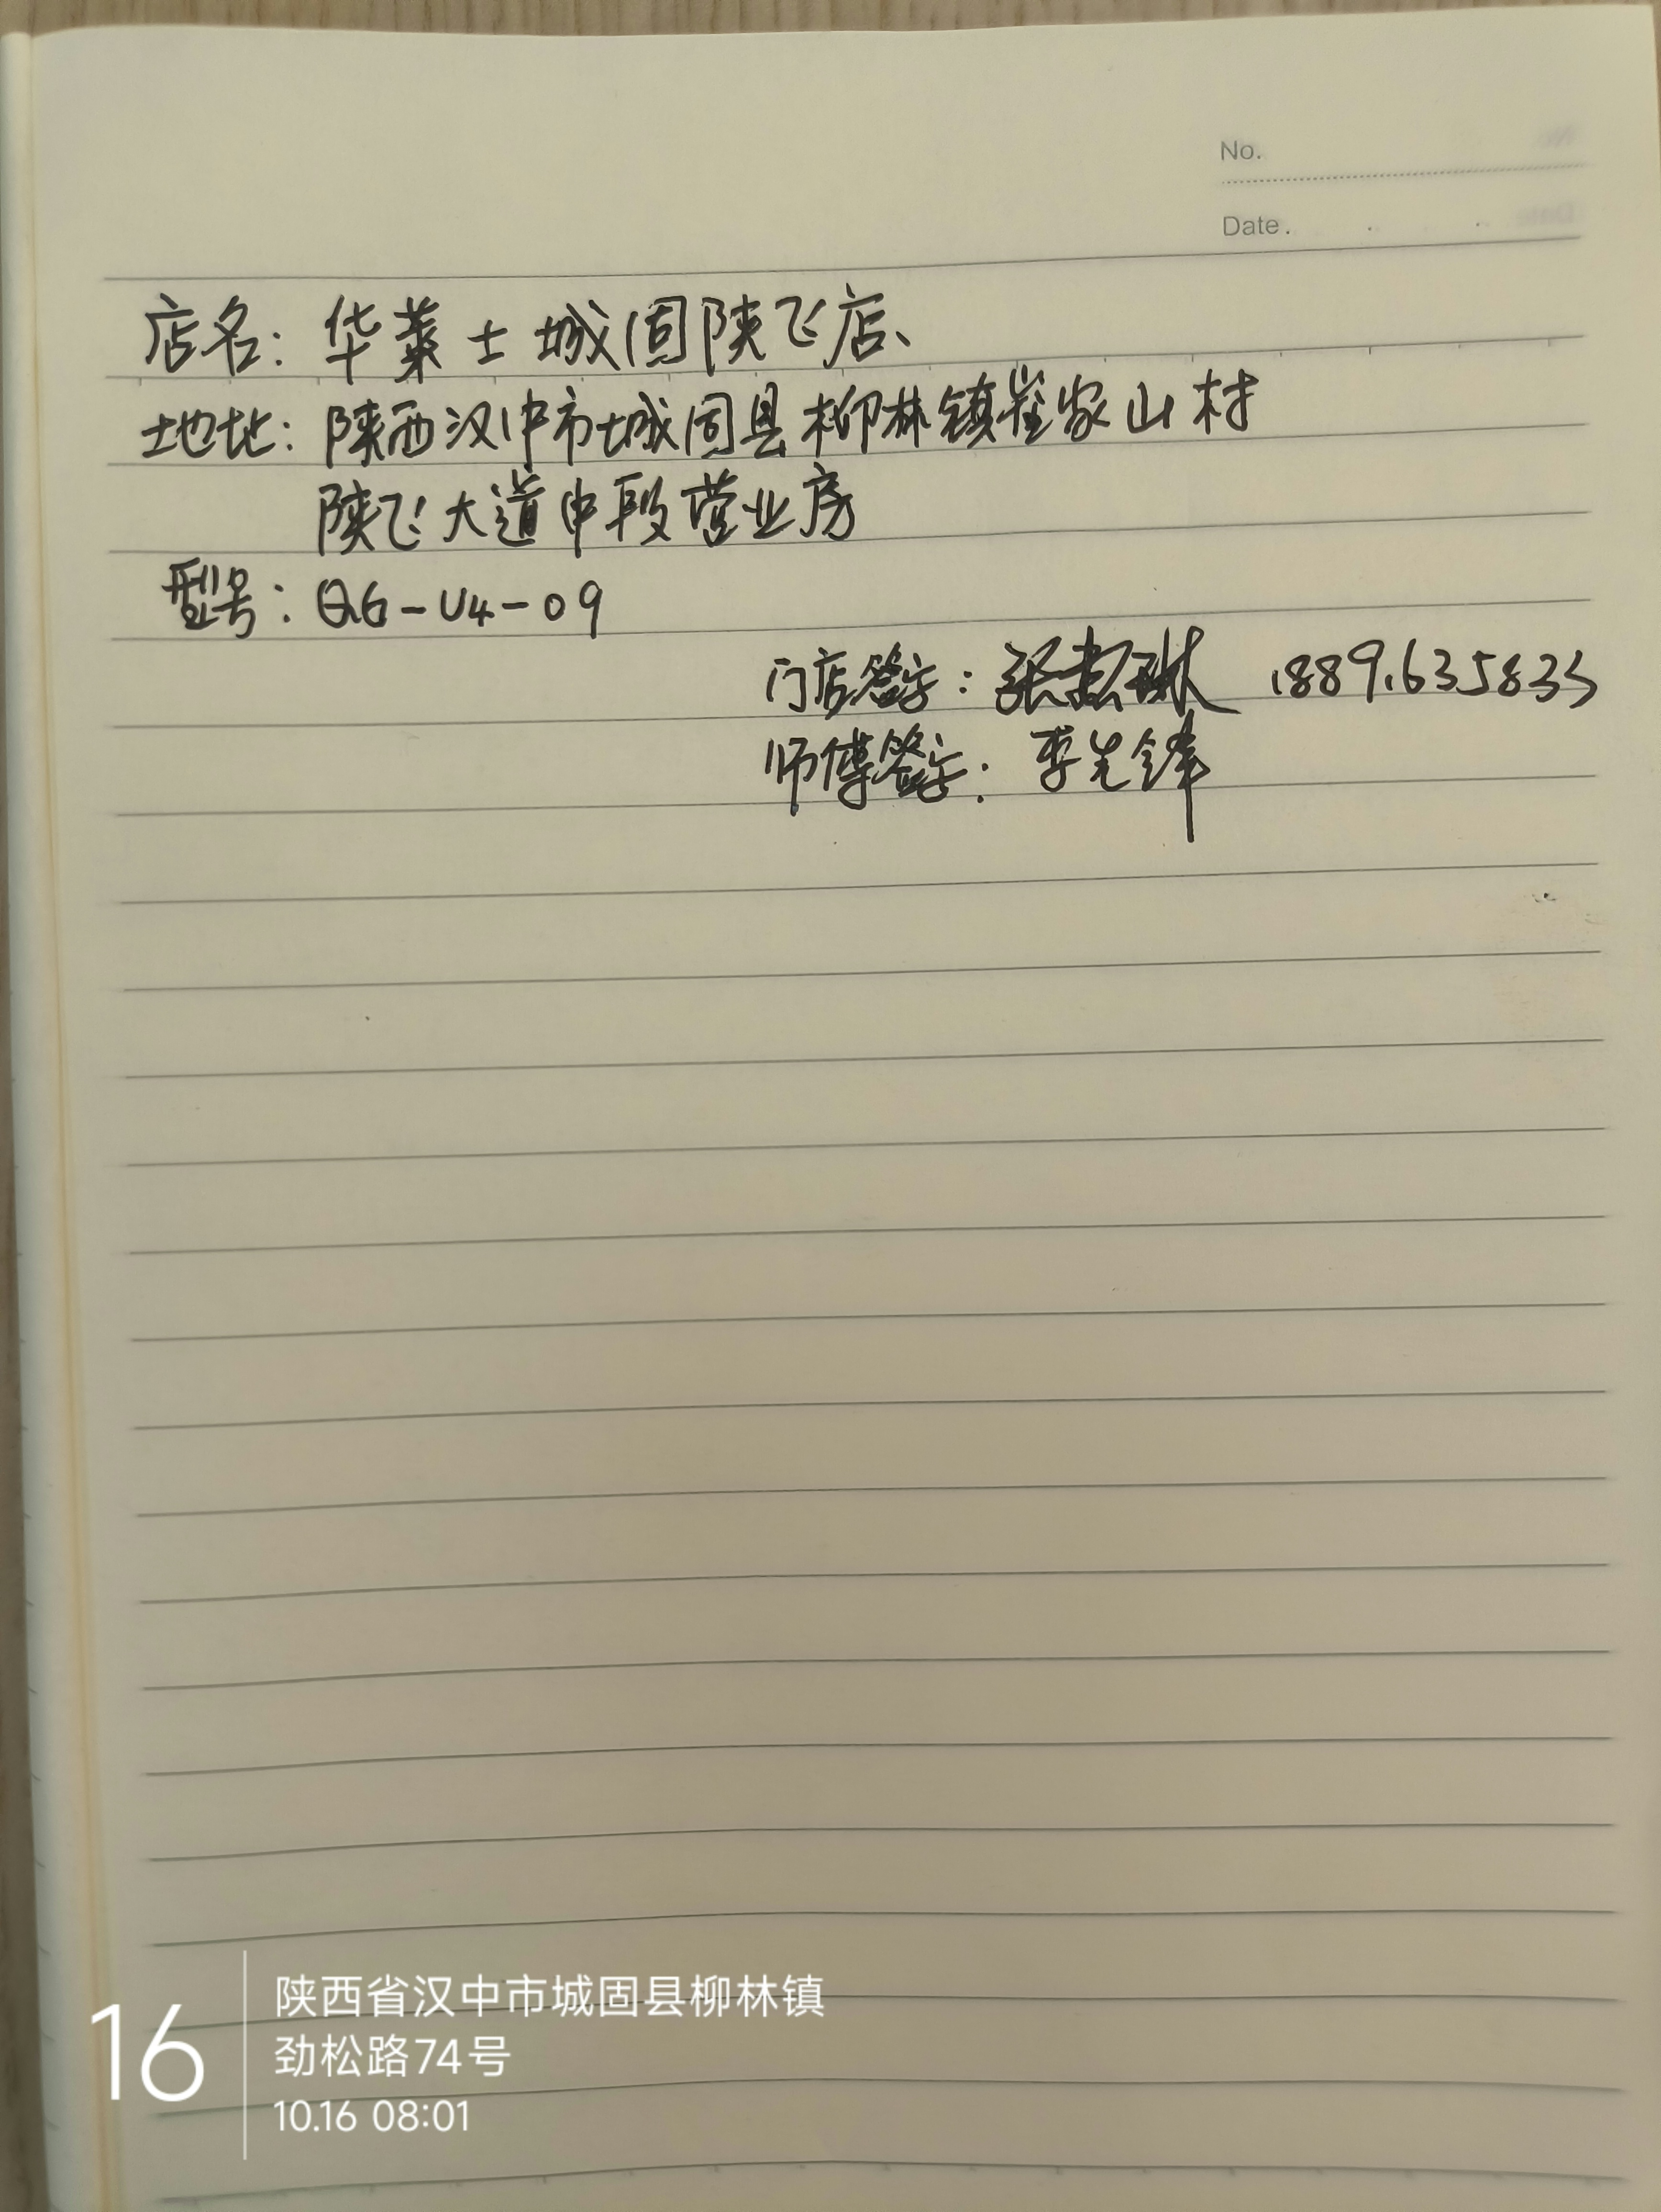 No.
Date.
店名：华莱士城固陕飞店、
地址：陕西汉中市城固县柳林镇崔家山村
陕飞大道中段营业房
型号：QG-U4-09
门店签字：张 18891635835
师傅签字：李先锋
16
陕西省汉中市城固县柳林镇
劲松路74号
10.16 08:01